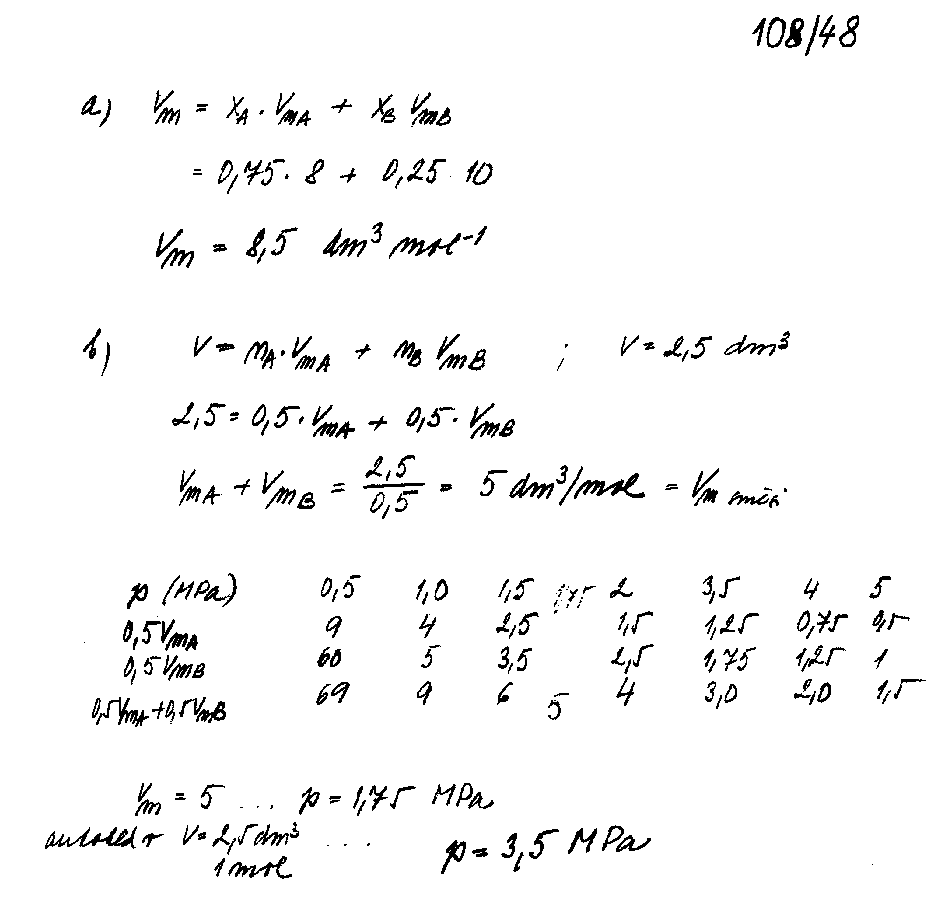 108/48
a) Vm = xA · VmA + xB VmB
= 0,75 · 8 + 0,25 · 10
Vm = 8,5 dm³ mol⁻¹
b) V = nA · VmA + nB VmB ; V = 2,5 dm³
2,5 = 0,5 · VmA + 0,5 · VmB
VmA + VmB = 2,5/0,5 = 5 dm³/mol = Vm směsi
p (MPa) 0,5 1,0 1,5 1,75 2 3,5 4 5
0,5VmA 9 4 2,5 1,5 1,25 0,75 0,5
0,5VmB 60 5 3,5 2,5 1,75 1,25 1
0,5VmA+0,5VmB 69 9 6 5 4 3,0 2,0 1,5
Vm = 5 ... p = 1,75 MPa
V = 2,5 dm³ ... p = 3,5 MPa
1 mol